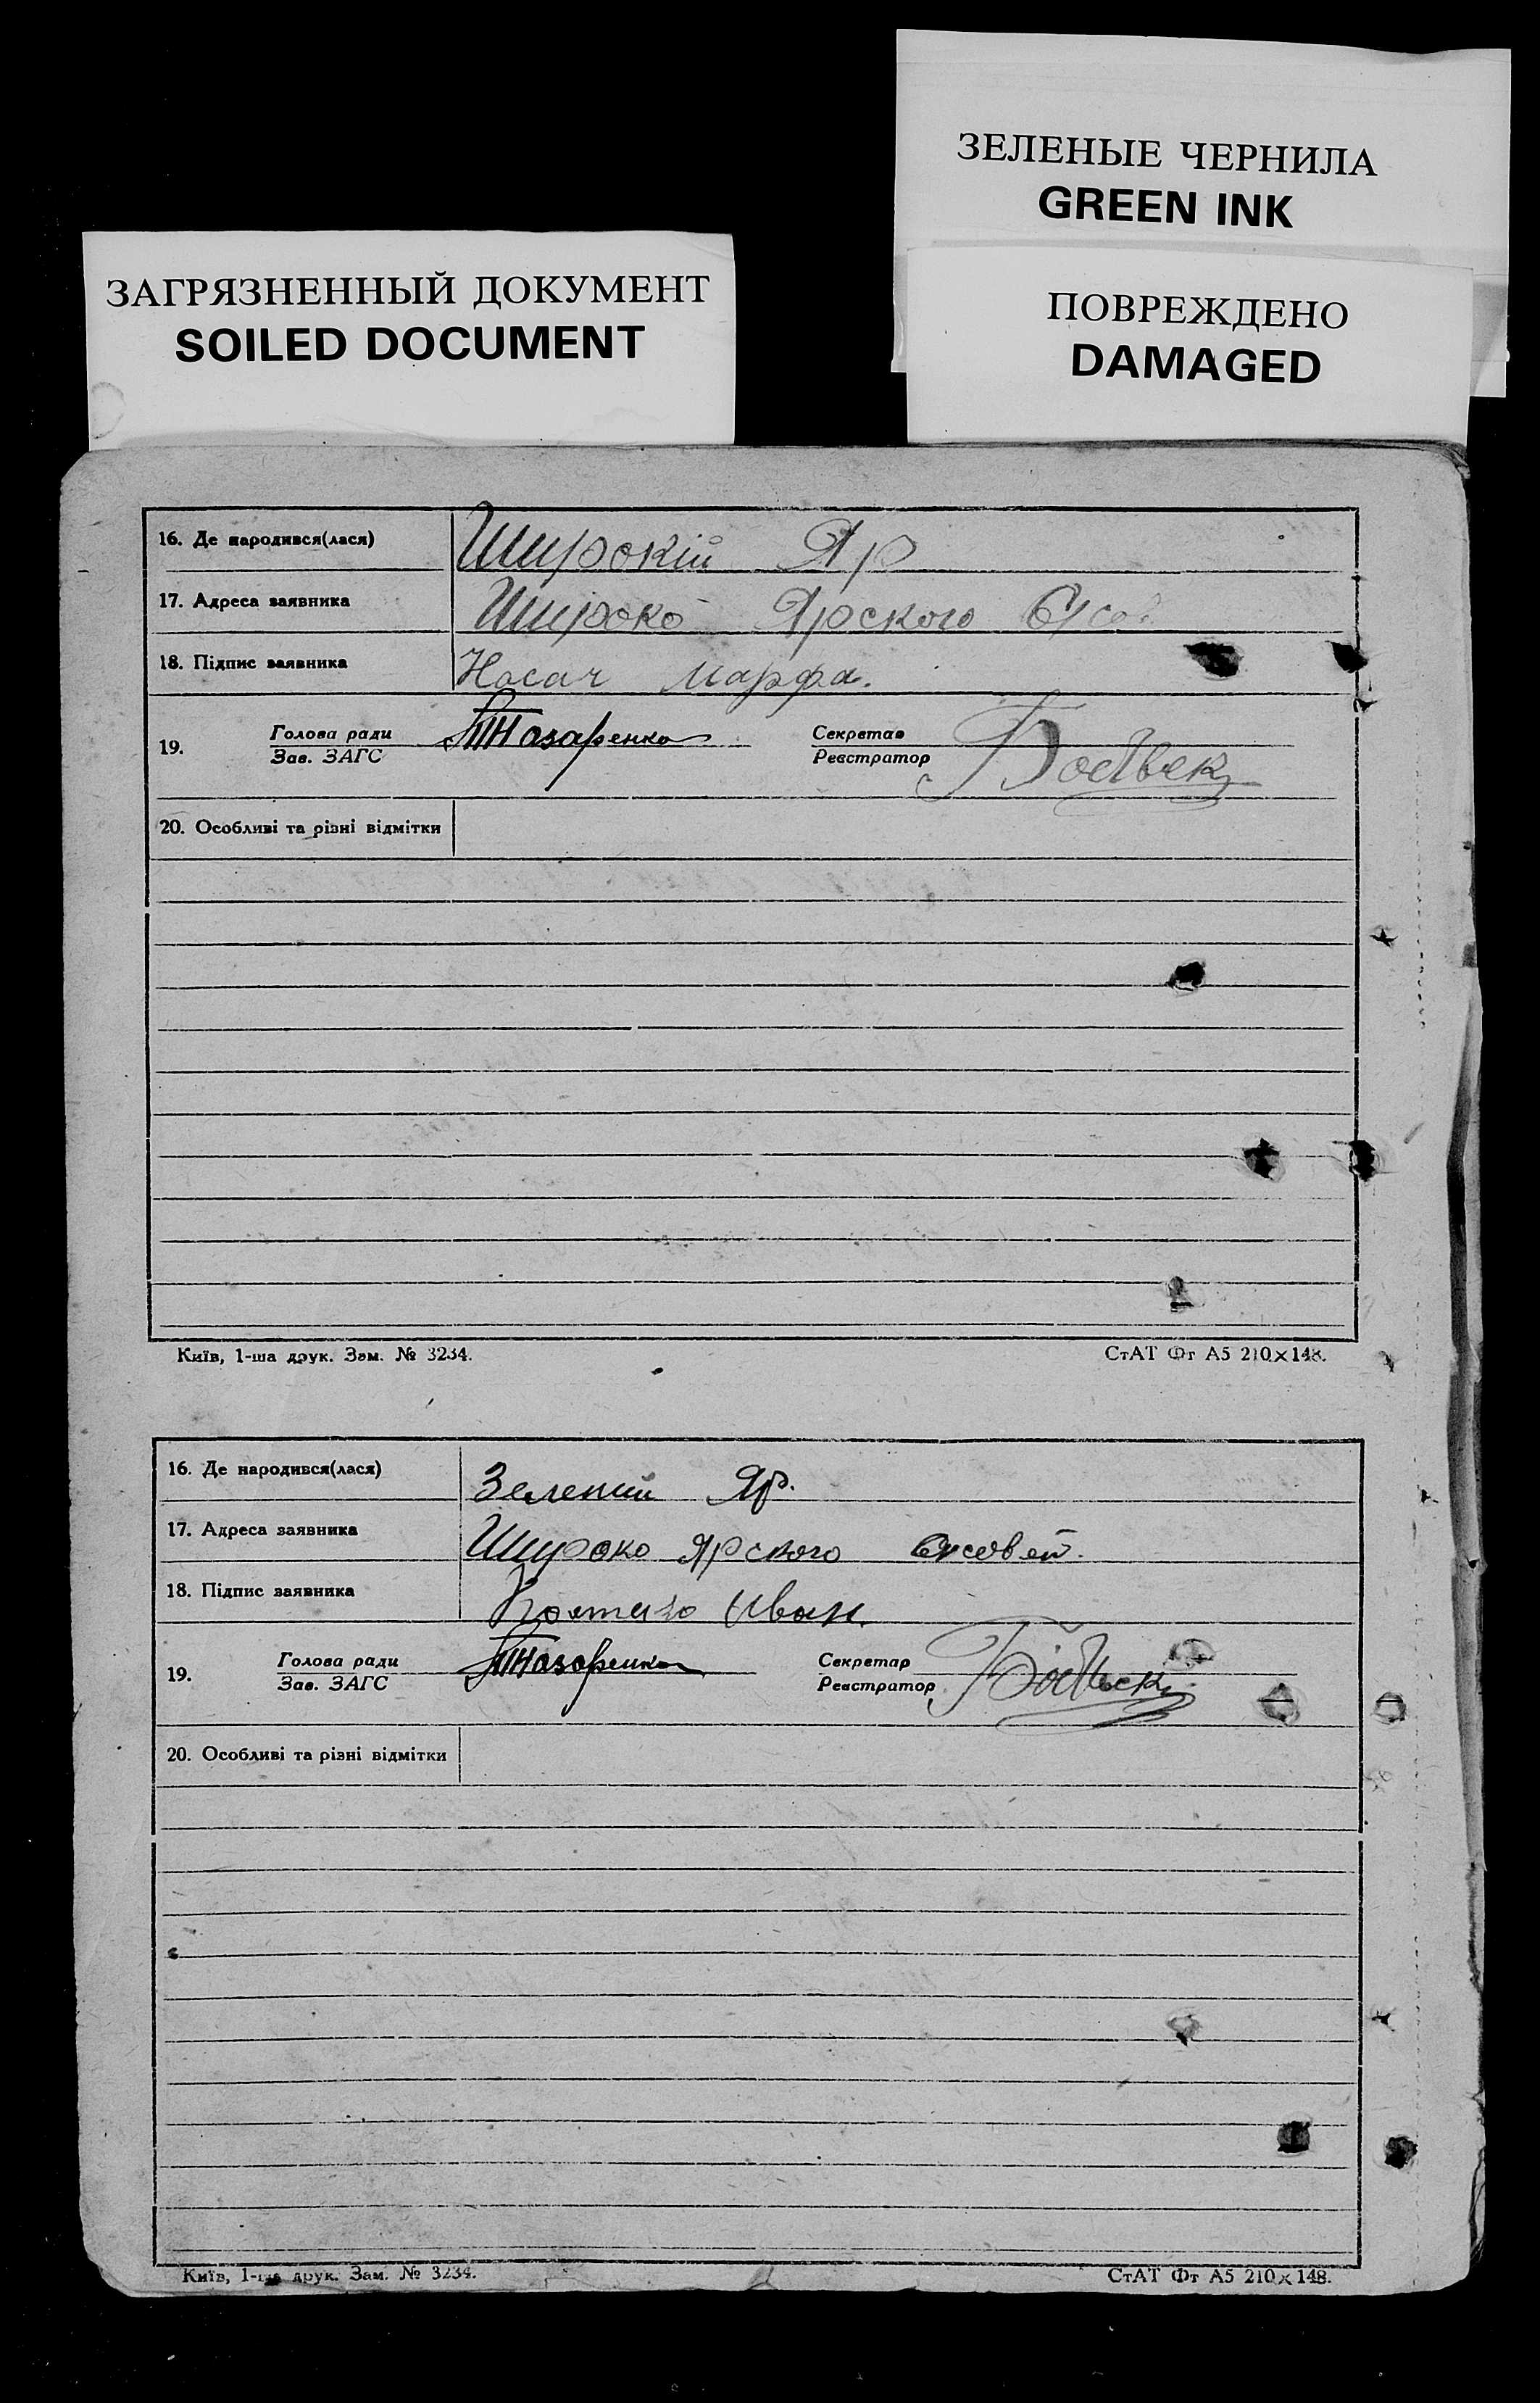 ЗЕЛЕНЫЕ ЧЕРНИЛА
GREEN INK
ЗАГРЯЗНЕННЫЙ ДОКУМЕНТ
SOILED DOCUMENT
ПОВРЕЖДЕНО
DAMAGED
16. Де народився(лася) Широкій Яр
17. Адреса заявника Широко Ярского
18. Підпис заявника Носач Марфа.
19. Голова ради Назаренко Секретар
Зав. ЗАГС Реєстратор
20. Особливі та різні відмітки
Київ, 1-ша друк. Зам. № 3234. СтАТ Фт А5 210×148.
16. Де народився(лася) Зелений Яр.
17. Адреса заявника Широко Ярского
18. Підпис заявника Иван.
19. Голова ради Назаренко Секретар
Зав. ЗАГС Реєстратор
20. Особливі та різні відмітки
Київ, 1-ша друк. Зам. № 3234. СтАТ Фт А5 210×148.